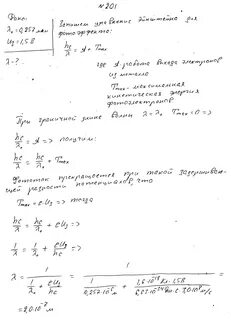 № 201
Дано:
λ₀ = 0,252 мкм
U₃ = 1,5 В
λ - ?
Запишем уравнение Эйнштейна для
фотоэффекта:
hc/λ = A + Tmax
где A - работа выхода электронов
из металла
Tmax - максимальная
кинетическая энергия
фотоэлектронов
При граничной длине волны λ = λ₀ Tmax = 0 =>
hc/λ₀ = A => получим:
hc/λ = hc/λ₀ + Tmax
Фототок прекращается при такой задерживаю-
щей разности потенциалов, что
Tmax = eU₃ => тогда
hc/λ = hc/λ₀ + eU₃ =>
1/λ = 1/λ₀ + eU₃/hc =>
λ = 1/(1/λ₀ + eU₃/hc) =